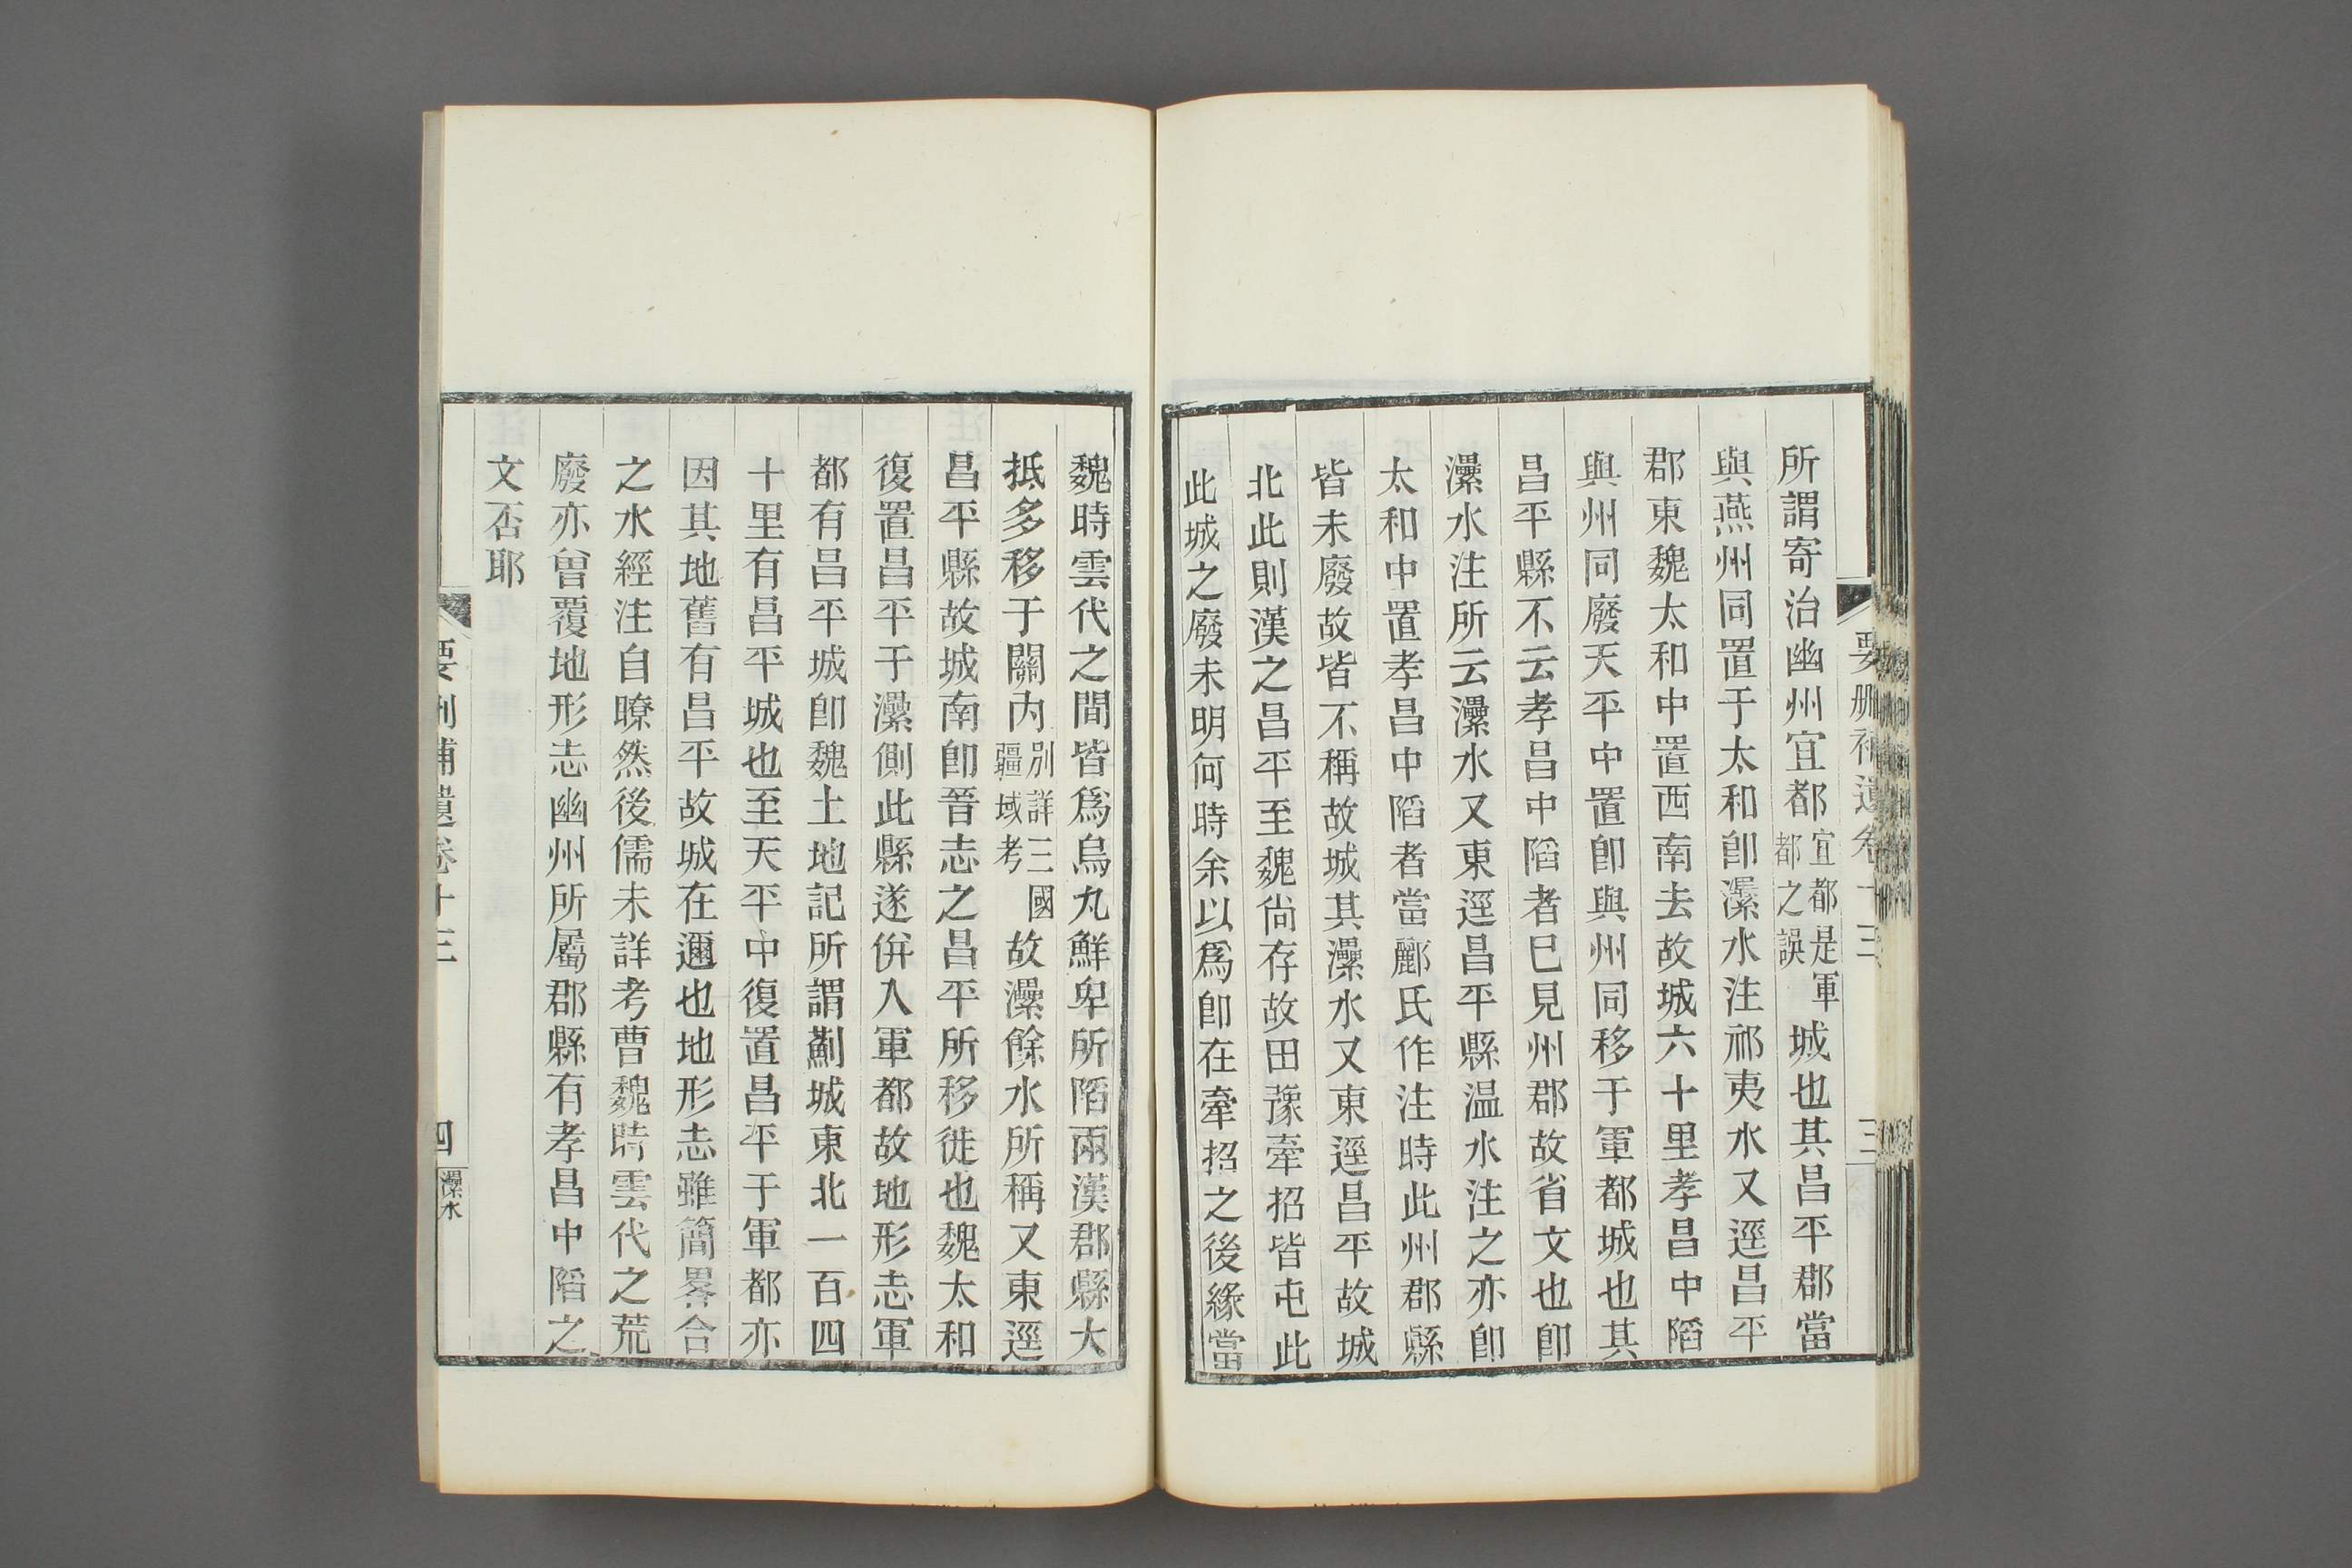 要刪補遺卷十三 三
所謂寄治幽州宜都宜都是軍都之誤城也其昌平郡當
與燕州同置于太和卽㶟水注祁夷水又逕昌平
郡東魏太和中置西南去故城六十里孝昌中陷
與州同廢天平中置卽與州同移于軍都城也其
昌平縣不云孝昌中陷者巳見州郡故省文也卽
㶟水注所云㶟水又東逕昌平縣温水注之亦卽
太和中置孝昌中陷者當酈氏作注時此州郡縣
皆未廢故皆不稱故城其㶟水又東逕昌平故城
北此則漢之昌平至魏尙存故田豫牽招皆屯此
此城之廢未明何時余以爲卽在牽招之後緣當
魏時雲代之間皆爲烏丸鮮卑所陷兩漢郡縣大
抵多移于關内別詳三國疆域考故㶟餘水所稱又東逕
昌平縣故城南卽晉志之昌平所移徙也魏太和
復置昌平于㶟側此縣遂併入軍都故地形志軍
都有昌平城卽魏土地記所謂薊城東北一百四
十里有昌平城也至天平中復置昌平于軍都亦
因其地舊有昌平故城在邇也地形志雖簡畧合
之水經注自瞭然後儒未詳考曹魏時雲代之荒
廢亦曾覆地形志幽州所屬郡縣有孝昌中陷之
文否耶
要刪補遺卷十三 四 㶟水